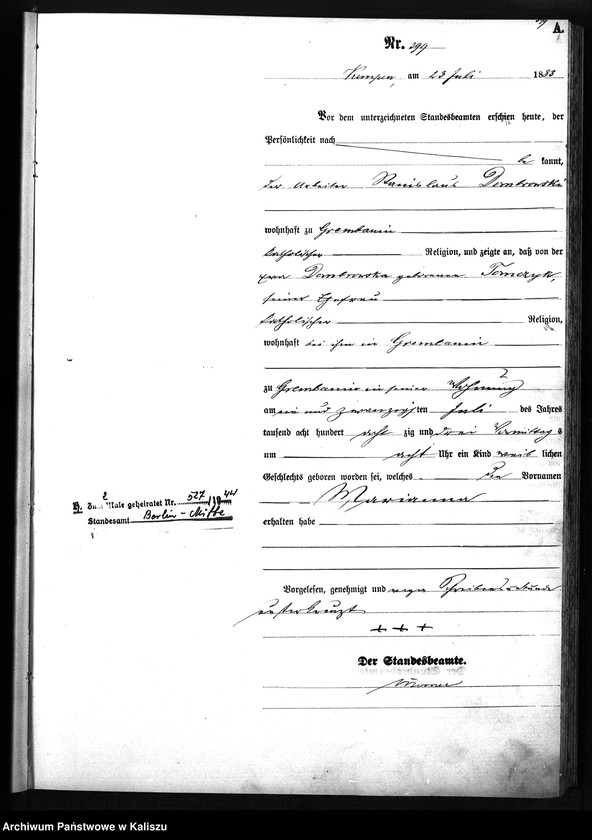 A.
Nr. 394
Kempen, am 23 Juli 1883
Vor dem unterzeichneten Standesbeamten erschien heute, der
Persönlichkeit nach
be kannt,
der Arbeiter Stanislaus Dombrowski
wohnhaft zu Grembanin
katholischer Religion, und zeigte an, daß von der
Dombrowska geborenen Tomczyk,
seiner Ehefrau
katholischer Religion,
wohnhaft bei ihm in Grembanin
zu Grembanin in seiner Wohnung
am ein und zwanzigsten Juli des Jahres
tausend acht hundert acht zig und drei Vormittags
um acht Uhr ein Kind weib lichen
Geschlechts geboren worden sei, welches den Vornamen
Marianna
erhalten habe
H. Zum 2 Male geheiratet Nr. 527/1944
Standesamt Berlin-Mitte
Vorgelesen, genehmigt und wegen Schreibensunkunde
unterkreuzt
+ + +
Der Standesbeamte.
Archiwum Państwowe w Kaliszu